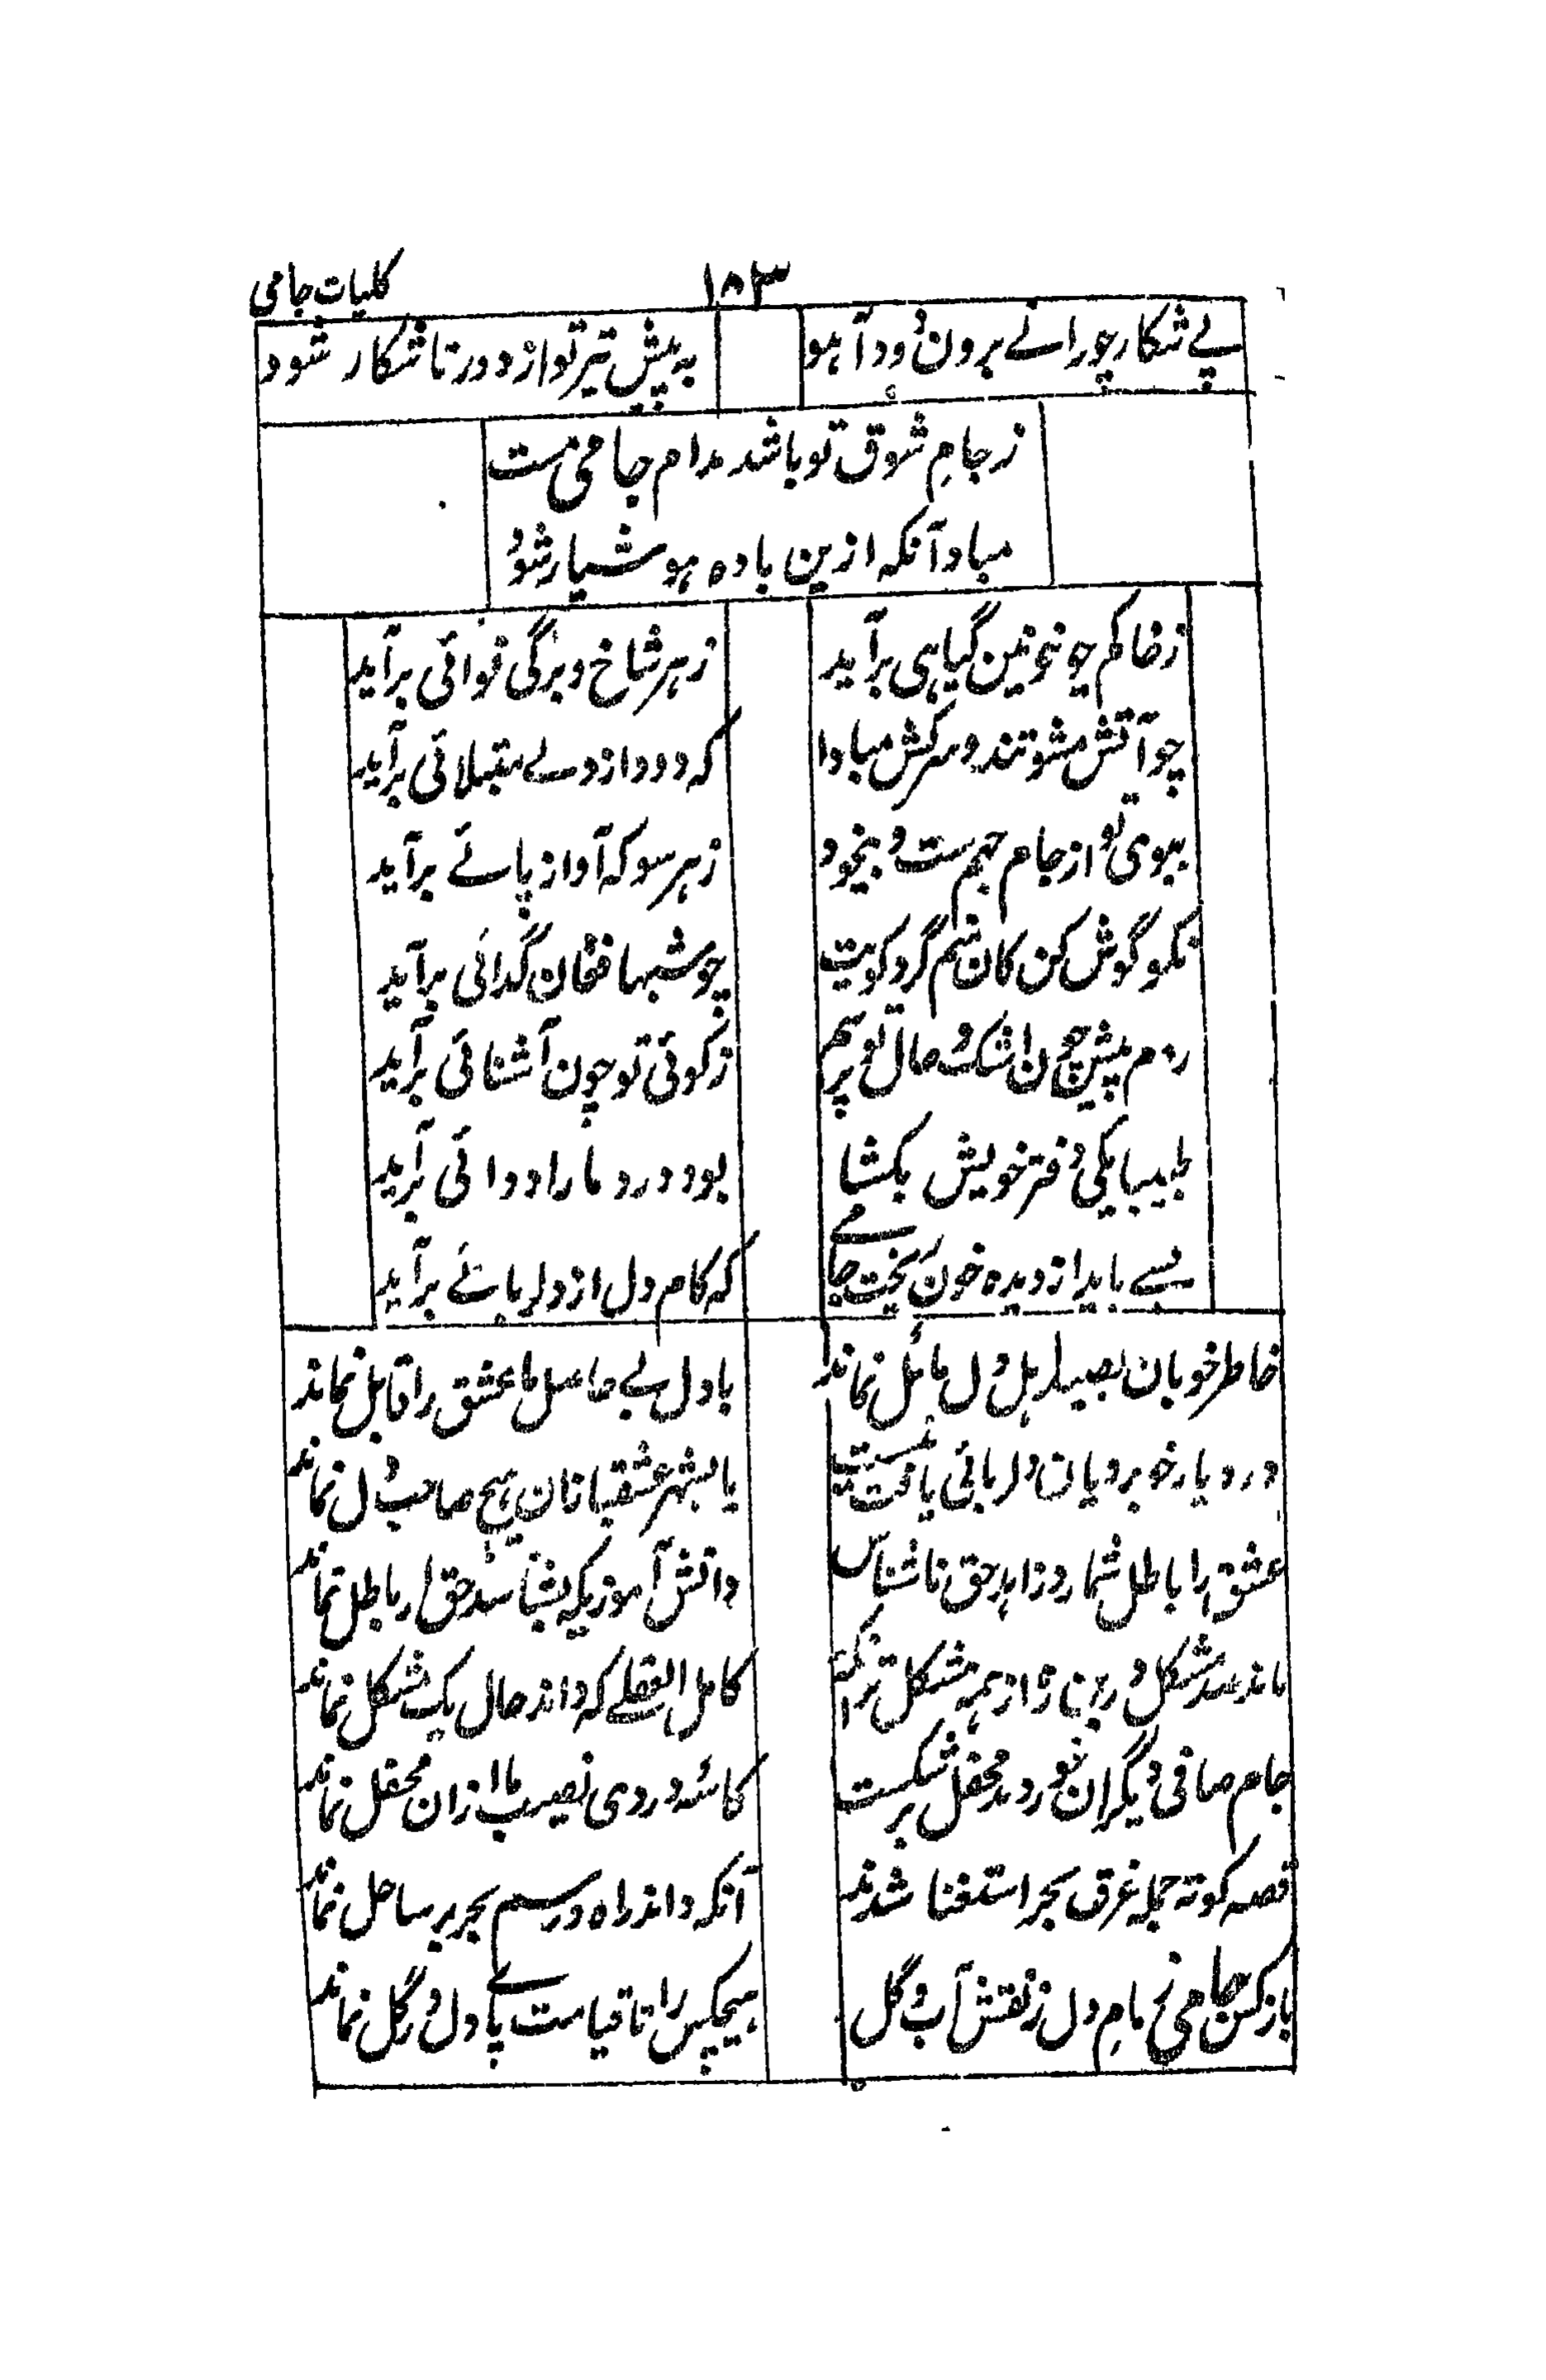 کلیات جامی
۱۸۳
پے شکار چو رانے برون دود آہو
بہ پیش تیر تو از دور تا شکار شود
ز جامِ شوق تو باشد مدام جامی مست
مباد آنکہ ازین بادہ ہوشیار شود
ز خاکم چو خونین گیاہی برآید
ز ہر شاخ و برگی نوائی برآید
چو آتش مشو تند و سرکش مبادا
کہ دود از دلے مبتلائی برآید
ببوی تو از جا جہم مست و بیخود
ز ہر سو کہ آواز پائے برآید
نکو گوش کن کان منم گرد کویت
چو شبہا فغان گدائی برآید
روم پیش چون اشک و حال تو پرسم
ز کوئی تو چون آشنائی برآید
طبیبا یکی دفتر خویش بکشا
بود درد ما را دوائی برآید
بسے باید از دیدہ خون ریخت جامے
کہ کام دل از دلربائے برآید
خاطر خوبان بصید اہل دل مائل نماند
یا دل بے حاصل ما عشق را قابل نماند
در دیار خوبرویان دلربائی یافت نیست
یا بشہر عشقبازان ہیچ صاحب دل نماند
عشق را باطل شمارد زاہد حق ناشناس
دانش آموزیکہ بشناسد حق از باطل نماند
ماند صد مشکل درین راہ از ہمہ مشکل تر آنکہ
کامل العقلے کہ داند حال یک مشکل نماند
جام صافی دیگران خوردند محفل بر شکست
کاسہ دردی نصیب ما ازان محفل نماند
قصہ کوتہ جملہ غرق بحر استغنا شدند
آنکہ داند راہ و رسم بحر بر ساحل نماند
باز کن جامی زمامِ دل ز نقش آب و گل
ہیچکس را تا قیامت پاے دل در گل نماند